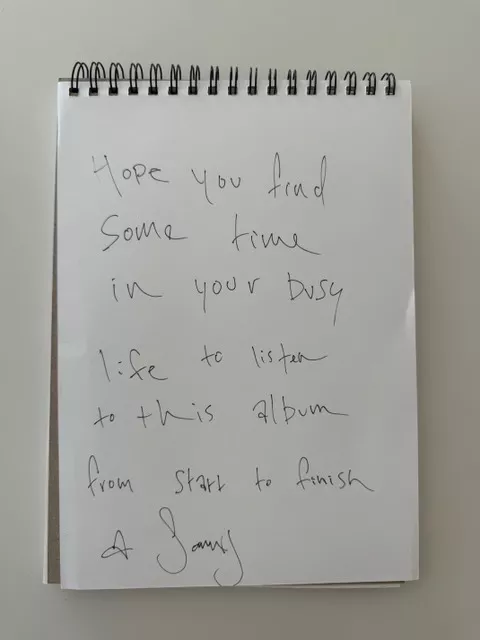 Hope you find
some time
in your busy
life to listen
to this album
from start to finish